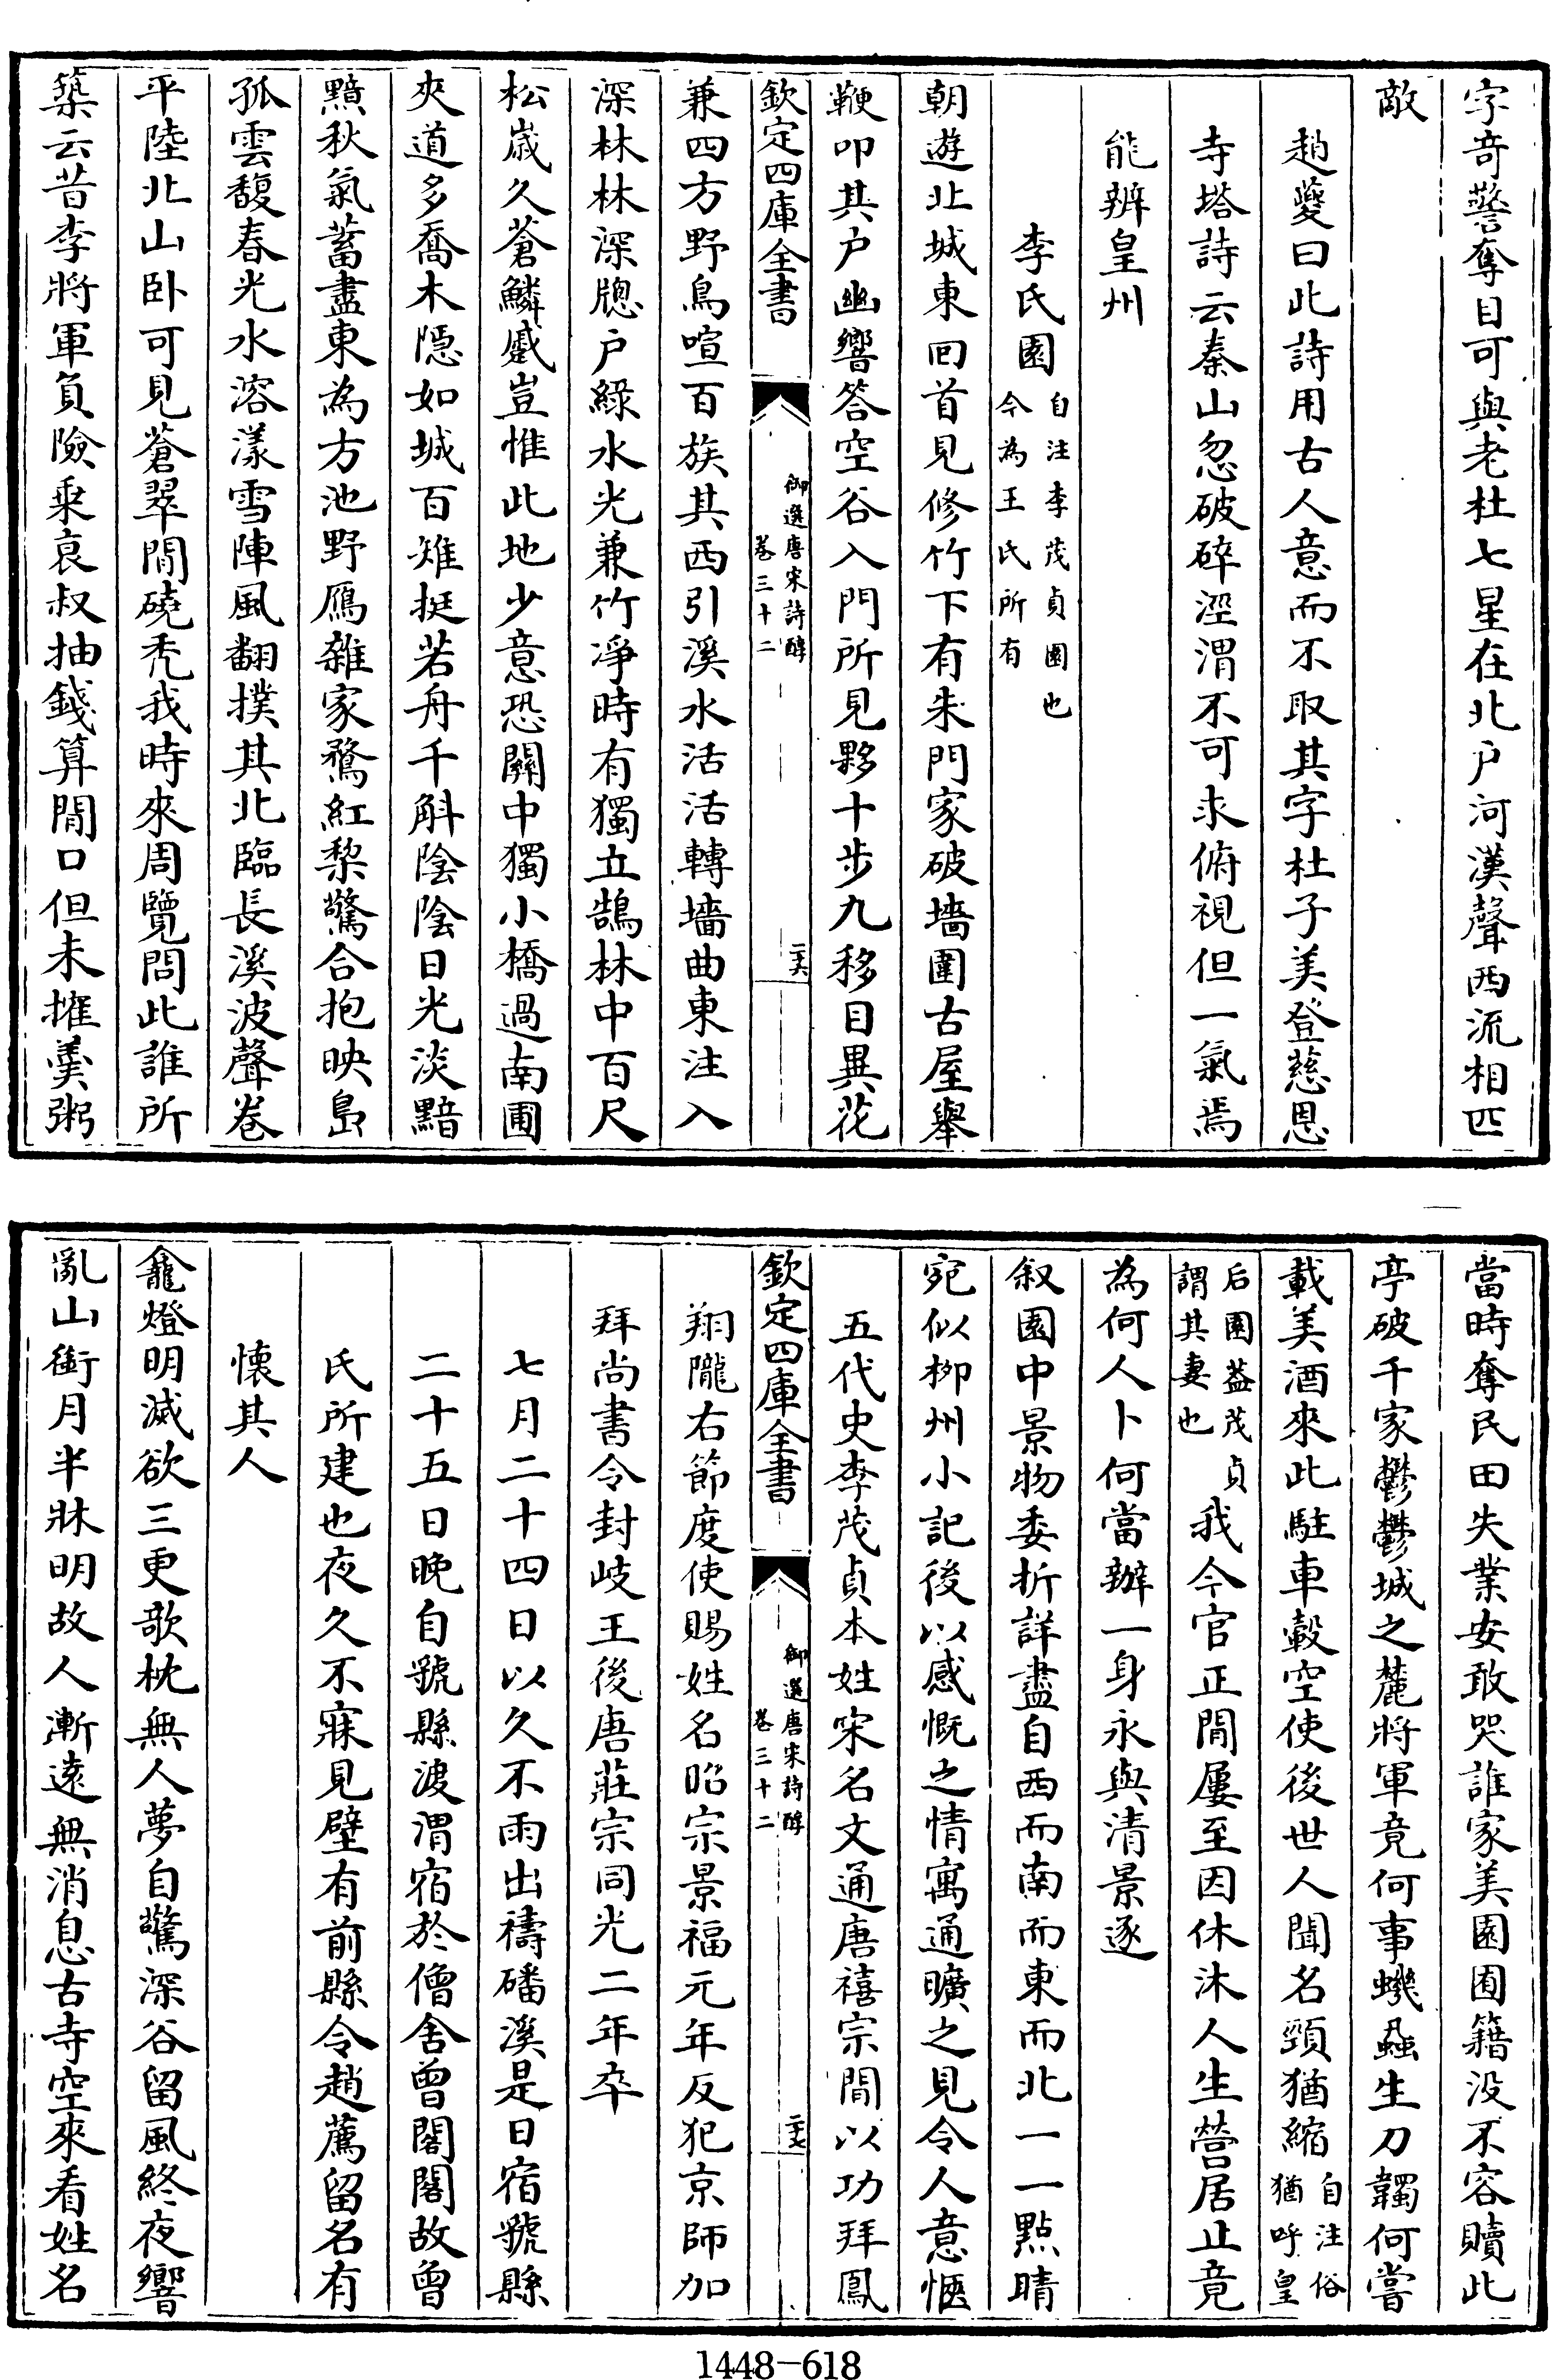 字奇警奪目可與老杜七星在北户河漢聲西流相匹
敵
趙夔曰此詩用古人意而不取其字杜子美登慈恩
寺塔詩云秦山忽破碎涇渭不可求俯視但一氣焉
能辨皇州
李氏園自注李茂貞園也
今為王氏所有
朝遊北城東回首見修竹下有朱門家破墻圍古屋舉
鞭叩其户幽響答空谷入門所見夥十步九移目異花
欽定四庫全書
御選唐宋詩醇
卷三十二
二十六
兼四方野鳥喧百族其西引溪水活活轉墻曲東注入
深林林深牕户緑水光兼竹凈時有獨立鵠林中百尺
松歲久蒼鱗蹙豈惟此地少意恐關中獨小橋過南圃
夾道多喬木隱如城百雉挺若舟千斛陰陰日光淡黯
黯秋氣蓄盡東為方池野鴈雜家鶩紅棃驚合抱映島
孤雲馥春光水溶漾雪陣風翻撲其北臨長溪波聲卷
平陸北山卧可見蒼翠間磽秃我時來周覽問此誰所
築云昔李將軍負險乗衰叔抽錢算間口但未搉羹粥
當時奪民田失業安敢哭誰家美園囿籍没不容贖此
亭破千家鬱鬱城之麓將軍竟何事蟣蝨生刀韣何嘗
載美酒來此駐車轂空使後世人聞名頸猶縮自注俗
猶呼皇
后園葢茂貞
謂其妻也我今官正閒屢至因休沐人生營居止竟
為何人卜何當辦一身永與清景逐
叙園中景物委折詳盡自西而南而東而北一一㸃睛
宛似柳州小記後以感慨之情寓通曠之見令人意愜
五代史李茂貞本姓宋名文通唐禧宗間以功拜鳳
欽定四庫全書
御選唐宋詩醇
卷三十二
二十七
翔隴右節度使賜姓名昭宗景福元年反犯京師加
拜尚書令封岐王後唐莊宗同光二年卒
七月二十四日以久不雨出禱磻溪是日宿虢縣
二十五日晚自虢縣渡渭宿於僧舍曾閣閣故曾
氏所建也夜久不寐見壁有前縣令趙薦留名有
懷其人
龕燈明滅欲三更欹枕無人夢自驚深谷留風終夜響
亂山銜月半牀明故人漸遠無消息古寺空來看姓名
1448-618